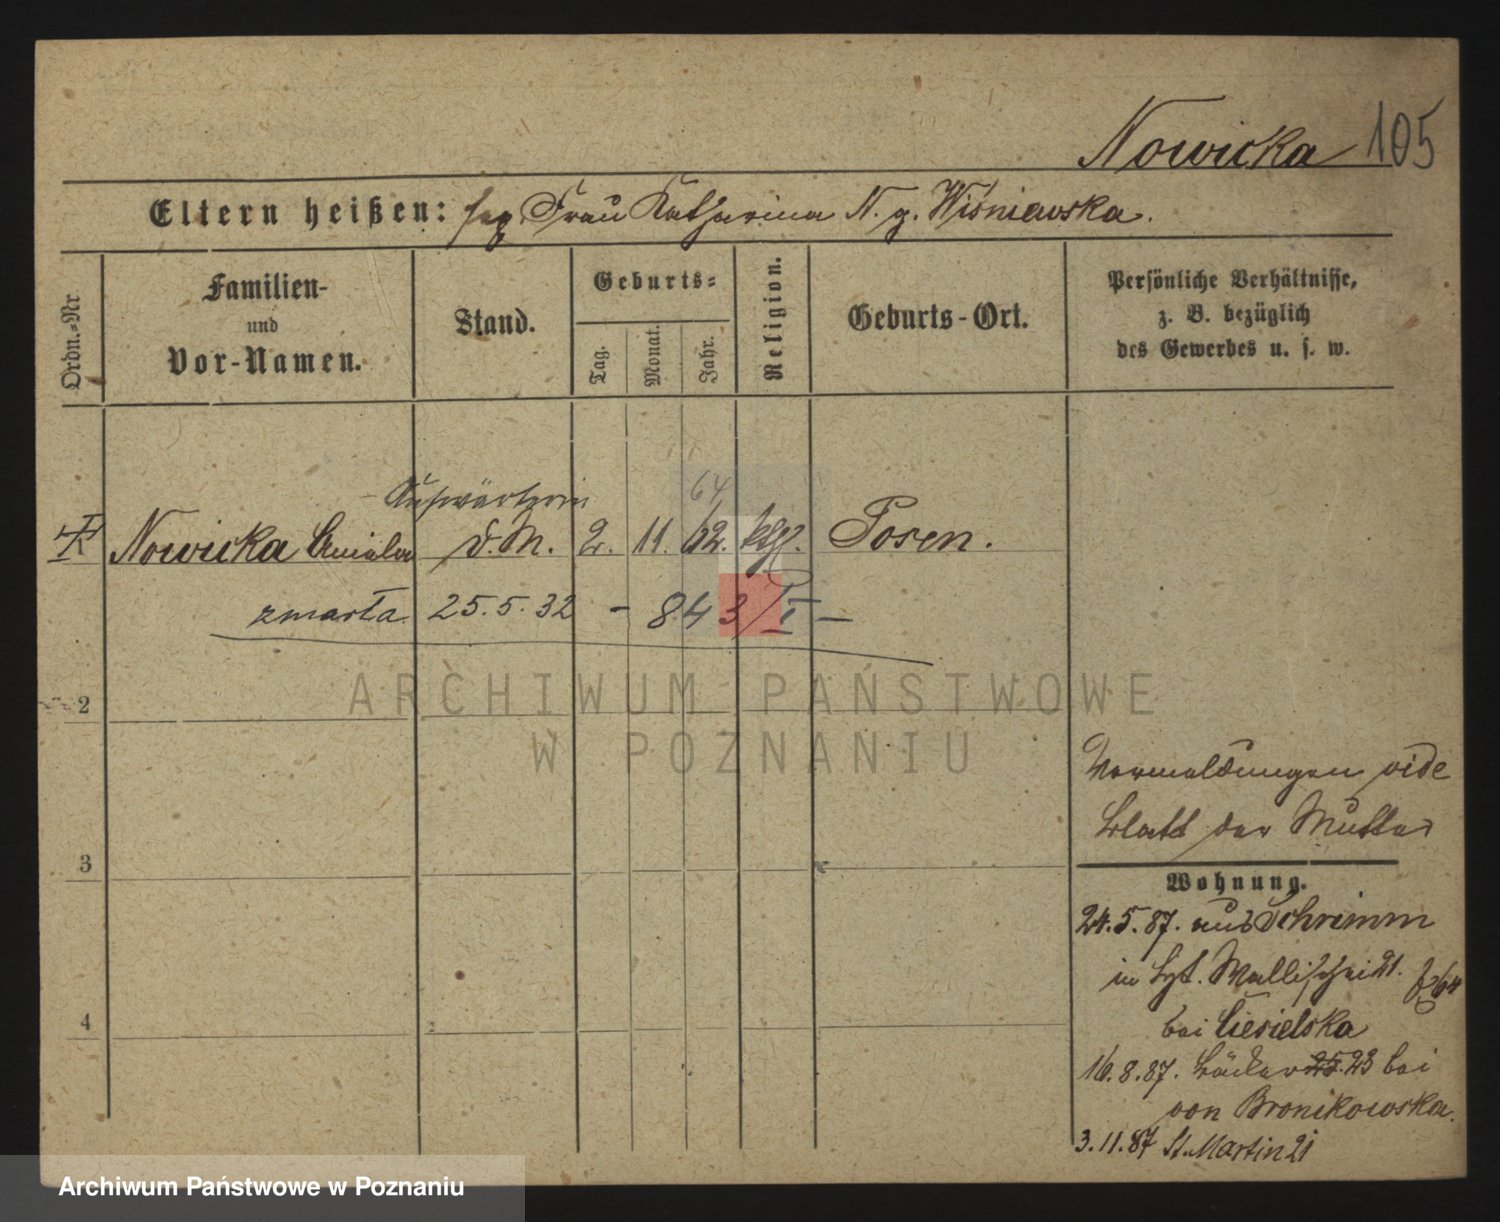 Nowicka 105
Eltern heißen: sep. Frau Katharina N. g. Wiśniewska.
Ordn.=Nr
Familien- und Vor-Namen.
Stand.
Geburts=
Tag.
Monat.
Jahr.
Religion.
Geburts-Ort.
Persönliche Verhältnisse,
z. B. bezüglich
des Gewerbes u. s. w.
Aufwärterin 64
Nowicka Aniela d. M. 2. 11. 62. klg. Posen.
zmarła 25.5.32 - 843/I -
2
Vormeldungen vide
Blatt der Mutter
3
Wohnung.
24.5.87. aus Schrimm
in Lgt. Wallischei 21.
4
bei Ciesielska
16.8.87. Bäcker 23 bei
von Bronikowska.
3.11.87 St. Martin 21
ARCHIWUM PAŃSTWOWE
W POZNANIU
Archiwum Państwowe w Poznaniu